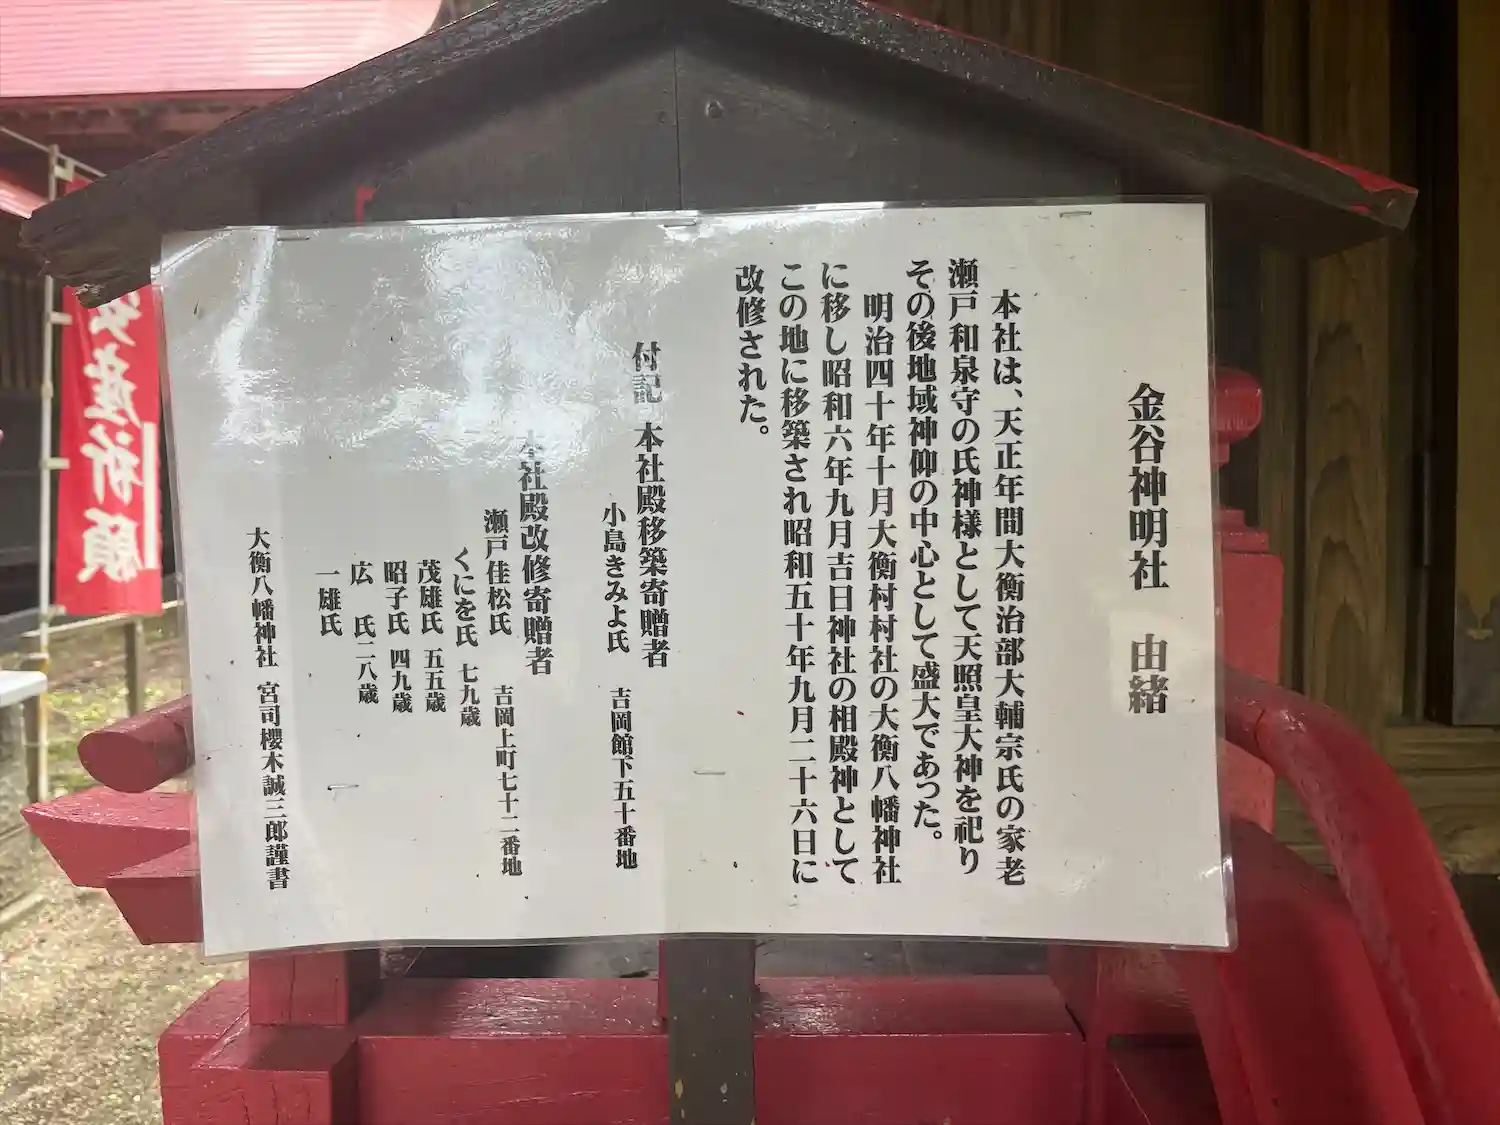 金谷神明社　由緒
本社は、天正年間大衡治部大輔宗氏の家老
瀬戸和泉守の氏神様として天照皇大神を祀り
その後地域神仰の中心として盛大であった。
明治四十年十月大衡村村社の大衡八幡神社
に移し昭和六年九月吉日神社の相殿神として
この地に移築され昭和五十年九月二十六日に
改修された。
付記　本社殿移築寄贈者
小島きみよ氏　吉岡館下五十番地
本社殿改修寄贈者
瀬戸佳松氏　吉岡上町七十二番地
くにを氏　七九歳
茂雄氏　五五歳
昭子氏　四九歳
広　氏二八歳
一雄氏
大衡八幡神社　宮司櫻木誠三郎謹書
安産祈願